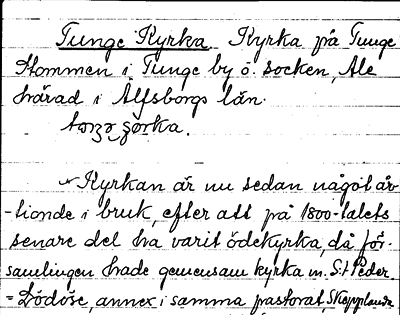 Tunge Kyrka Kyrka på Tunge
Kommen i Tunge by ö. socken, Ale
härad i Älfsborgs län.
Kyrkan är nu sedan något år-
-tionde i bruk, efter att på 1800-talets
senare del ha varit ödekyrka, då för-
samlingen hade gemensam kyrka m. S:t Peder.
= Lödöse, annex i samma pastorat, Skepplanda